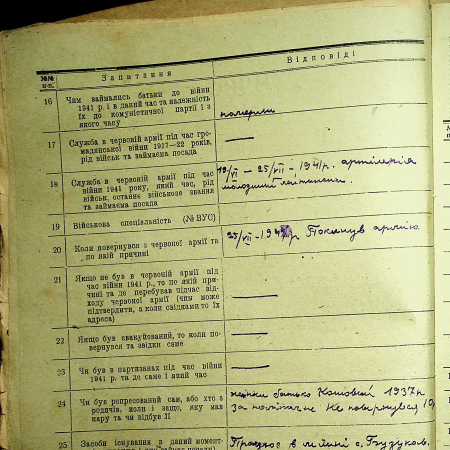 №№ п-п.
Запитання
Відповіді
16
Чим займались батьки до війни
1941 р. і в даний час та належність
їх до комуністичної партії і з
якого часу
померли
17
Служба в червоній армії під час гро-
мадянської війни 1917—22 років,
рід військ та займаєма посада
—
18
Служба в червоній армії під час
війни 1941 року, який час, рід
військ, останнє військове звання
та займаєма посада
/VI — 25/VII — 1941р. артілерія
молодший лейтинант.
19
Військова спеціяльність (№ ВУС)
20
Коли повернувся з червоної армії та
по якій причині
25/VII - 194 р Покинув армію
21
Якщо не був в червоній армії під
час війни 1941 р., то по якій при-
чині та де перебував підчас від-
ходу червоної армії (чим може
підтвердити, а коли свідками то їх
адреса)
—
22
Якщо був евакуйований, то коли по-
вернувся та звідки саме
—
23
Чи був в партизанах під час війни
1941 р. та де саме і який час
—
24
Чи був репресований сам, або хто з
родичів, коли і защо, яку мав
кару та чи відбув її
батько 1937 р
за Не повернувся
25
Засоби існування в даний момент
Працює в с.